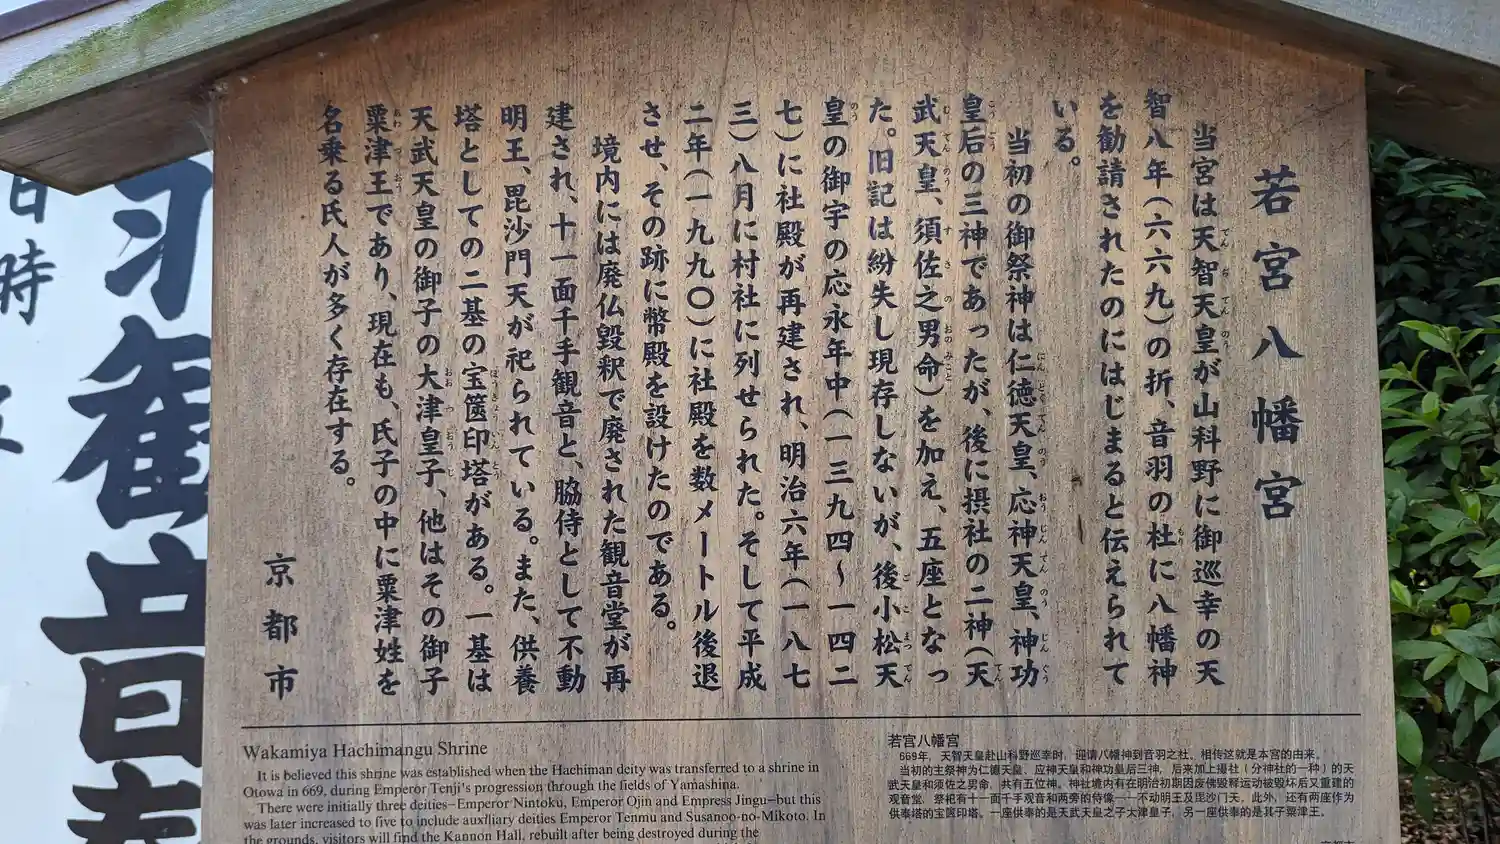 若宮八幡宮
当宮は天智天皇が山科野に御巡幸の天
智八年(六六九)の折、音羽の杜に八幡神
を勧請されたのにはじまると伝えられて
いる。
当初の御祭神は仁徳天皇、応神天皇、神功
皇后の三神であったが、後に摂社の二神(天
武天皇、須佐之男命)を加え、五座となっ
た。旧記は紛失し現存しないが、後小松天
皇の御宇の応永年中(一三九四〜一四二
七)に社殿が再建され、明治六年(一八七
三)八月に村社に列せられた。そして平成
二年(一九九〇)に社殿を数メートル後退
させ、その跡に幣殿を設けたのである。
境内には廃仏毀釈で廃された観音堂が再
建され、十一面千手観音と、脇侍として不動
明王、毘沙門天が祀られている。また、供養
塔としての二基の宝篋印塔がある。一基は
天武天皇の御子の大津皇子、他はその御子
粟津王であり、現在も、氏子の中に粟津姓を
名乗る氏人が多く存在する。
京都市
Wakamiya Hachimangu Shrine
It is believed this shrine was established when the Hachiman deity was transferred to a shrine in
Otowa in 669, during Emperor Tenji's progression through the fields of Yamashina.
There were initially three deities–Emperor Nintoku, Emperor Ojin and Empress Jingu–but this
was later increased to five to include auxiliary deities Emperor Tenmu and Susanoo-no-Mikoto. In
the grounds, visitors will find the Kannon Hall, rebuilt after being destroyed during the
若宫八幡宫
669年，天智天皇赴山科野巡幸时，迎请八幡神到音羽之社，相传这就是本宫的由来。
当初的主祭神为仁德天皇、应神天皇和神功皇后三神，后来加上摄社（分神社的一种）的天
武天皇和须佐之男命，共有五位神。神社境内有在明治初期因废佛毁释运动被毁坏后又重建的
观音堂，祭祀有十一面千手观音和两旁的侍像——不动明王及毘沙门天。此外，还有两座作为
供奉塔的宝箧印塔，一座供奉的是天武天皇之子大津皇子，另一座供奉的是其子粟津王。
日時
羽観音寺